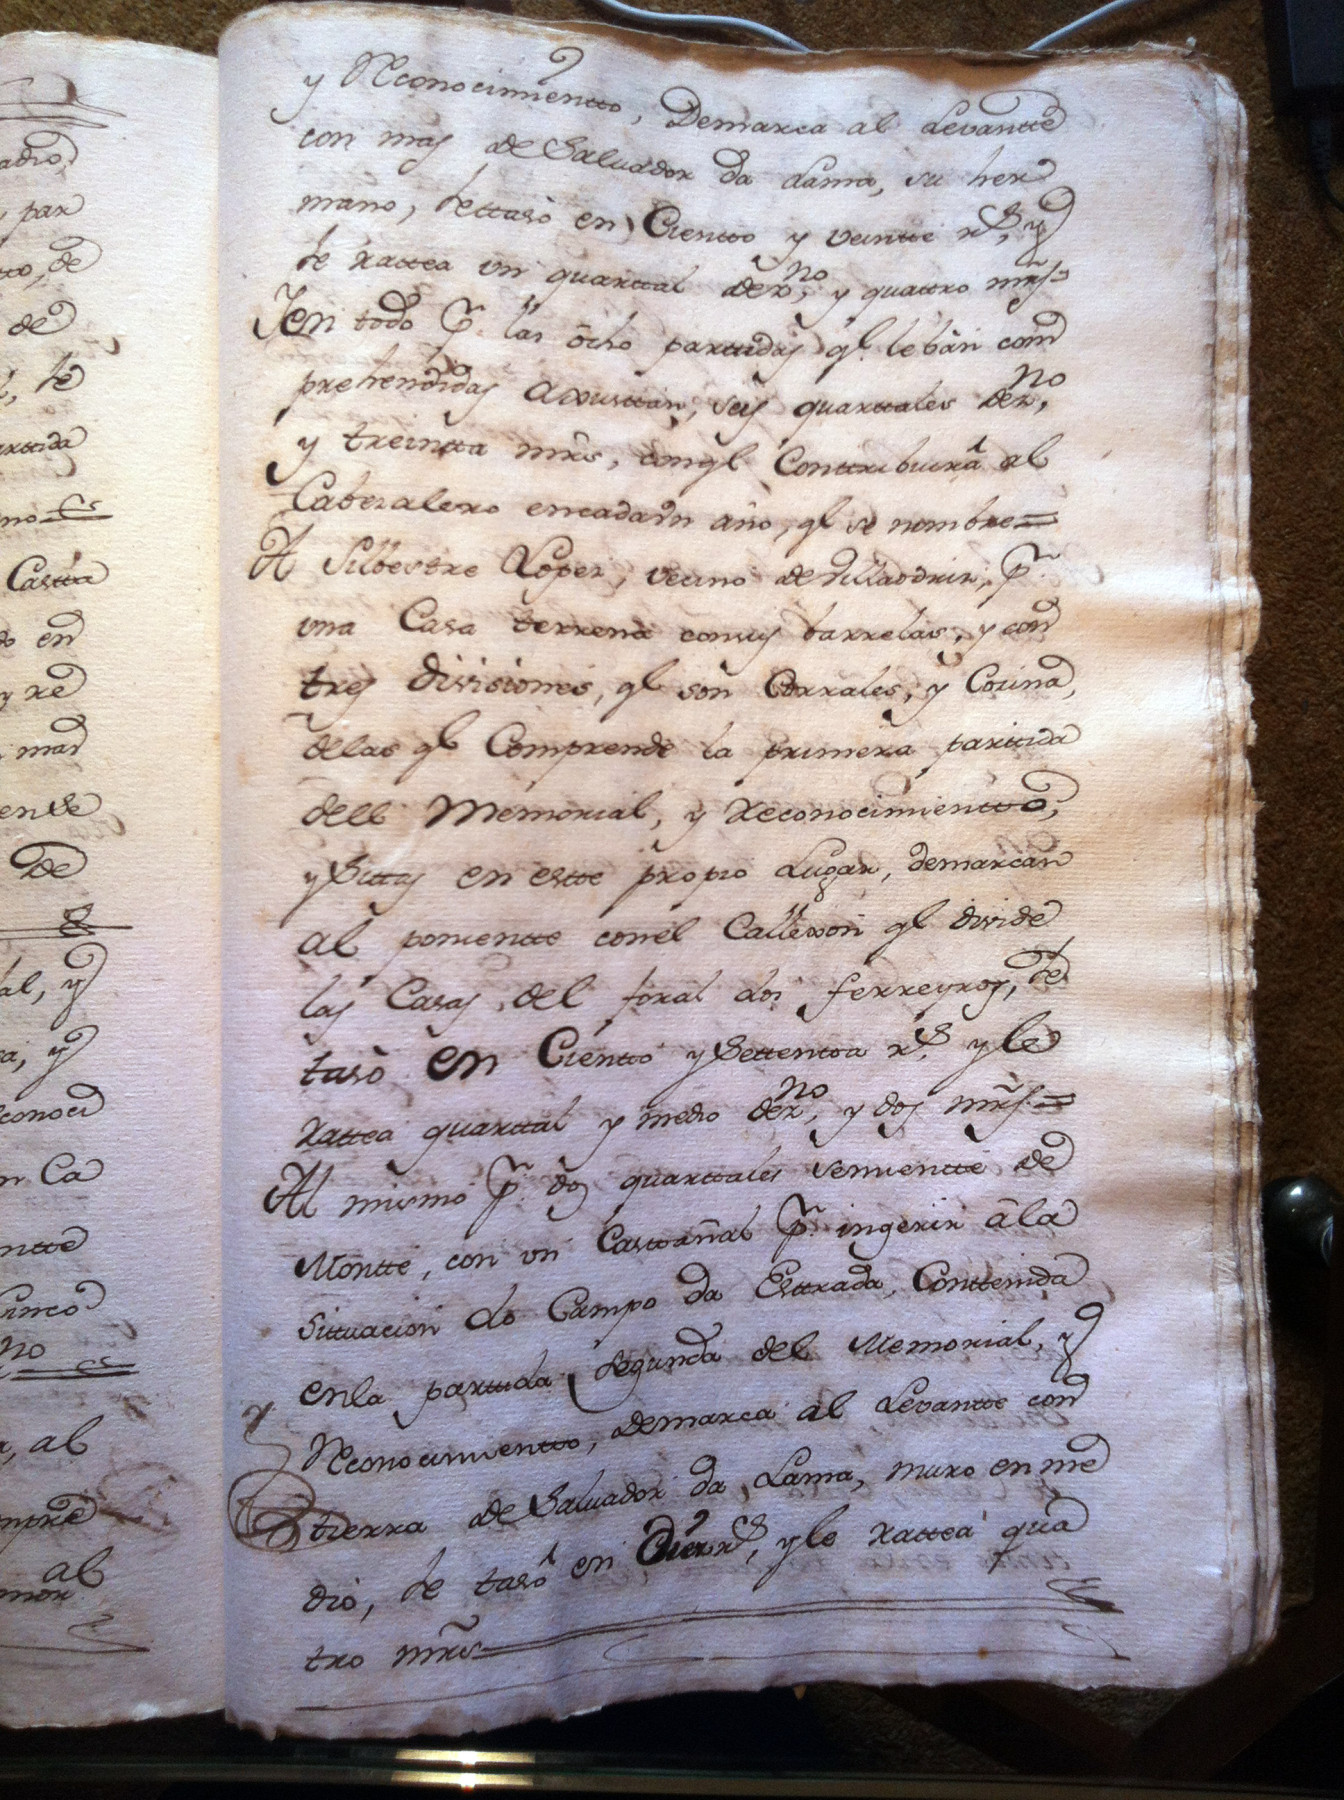 y Reconocimientto, Demarca al Levantte
con mas de Salvador da Lama, su her
mano, se ttasò en Cientto y veintte rs, y
se rattea un quarttal de zno, y quattro mrs=
Y en todo pr. las ôcho parttidas ql. se bàn com
prehendidas axusttan, seis quarttales de zno,
y treintta mrs, con ql Conttribuirà al
Cabezalero en cada un año, ql se nombre=
A Silbestre Lopez, vecino de Villaodriz, pr.
una Casa terrena con sus barrelas, y con
tres divisiones, ql son Corrales, y Cozina,
de las ql Comprende la primera parttida
dell Memorial, y Reconocimientto,
y Sittas en estte propio Lugar, demarcan
al ponientte con el Callexon ql divide
las Casas del foral dos ferreyros, se
tasò en Cientto y Settentta rs. y le
rattea quarttal y medio de zno, y dos mrs=
Al mismo pr. dos quarttales semientte de
Montte, con un Casttañal pr. ingerir â la
Sittuacion do Campo da Esttrada, Conttenida
en la parttida segunda del Memorial, y
Reconocimientto, demarca al Levantte con
tierra de Salvador da Lama, muro en me
dio, se tasò en Diez rs, y le rattea qua
tro mrs
adio,
par
tto, de
de
se
rttida
no
Castta
en
y re
mas
ente
de
al, y
a, y
conoci
n Ca
ntte
Cinco
no
al
mpre
al